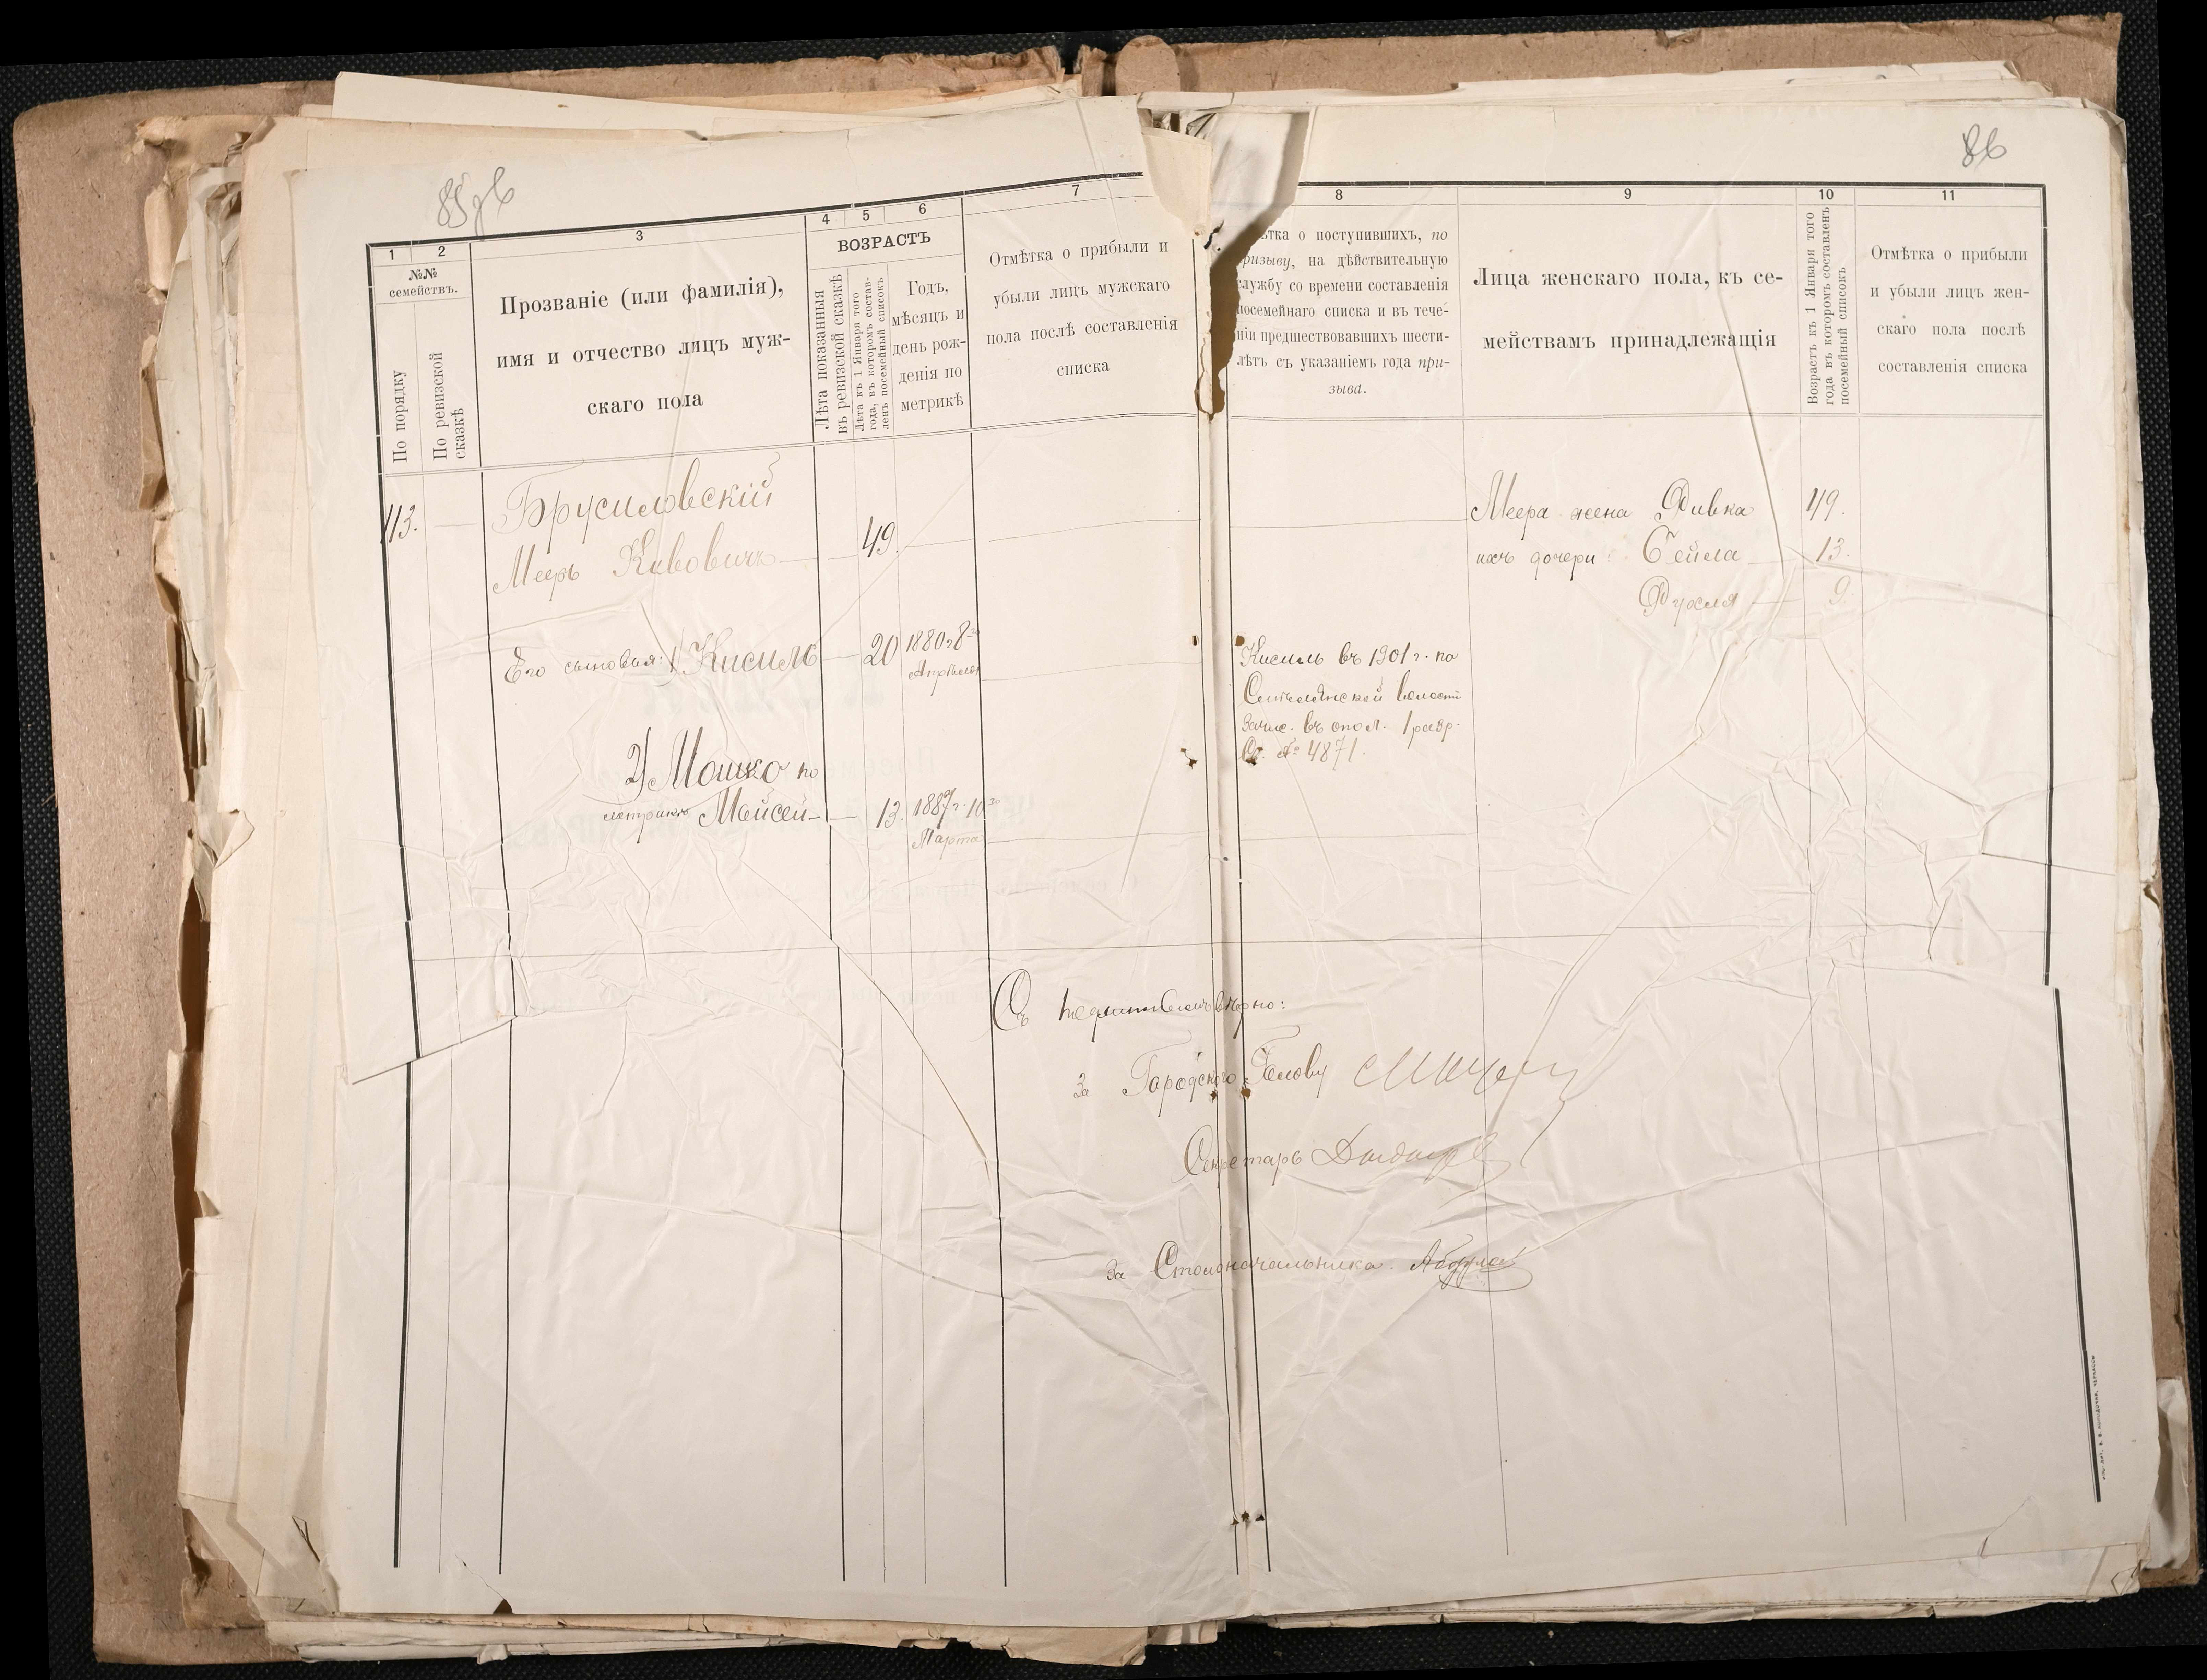 85 об
86
1
2
3
4
5
6
7
8
9
10
11
№№
семействъ.
По порядку
По ревизской
сказкѣ
Прозваніе (или фамилія),
имя и отчество лицъ муж-
скаго пола
ВОЗРАСТЪ
Лѣта показанныя
въ ревизской сказкѣ
Лѣта къ 1 Января того
года, въ которомъ состав-
ленъ посемейный списокъ
Годъ,
мѣсяцъ и
день рож-
денія по
метрикѣ
Отмѣтка о прибыли и
убыли лицъ мужскаго
пола послѣ составленія
списка
тка о поступившихъ, по
ризыву, на дѣйствительную
службу со времени составленія
посемейнаго списка и въ тече-
ніи предшествовавшихъ шести-
лѣтъ съ указаніемъ года при-
зыва.
Лица женскаго пола, къ се-
мействамъ принадлежащія
Возрастъ къ 1 Января того
года въ которомъ составленъ
посемейный списокъ
Отмѣтка о прибыли
и убыли лицъ жен-
скаго пола послѣ
составленія списка
113.
Брусиловскій
Мееръ Кивовичъ 49.
Его сыновья: 1) Кисиль 20 1880 г 8го
Апрѣля
2) Мошко по
метрикѣ Мойсей 13. 1887 г. 10го
Марта
Кисиль въ 1901 г. по
волости
Зачис. въ опол. 1 разр.
Св. № 4871.
Меера жена Ривка 49.
ихъ дочери: Бейла 13.
Рухля 9.
Съ подлиннымъ вѣрно:
За Городского Голову
Секретарь
За Столоначальника